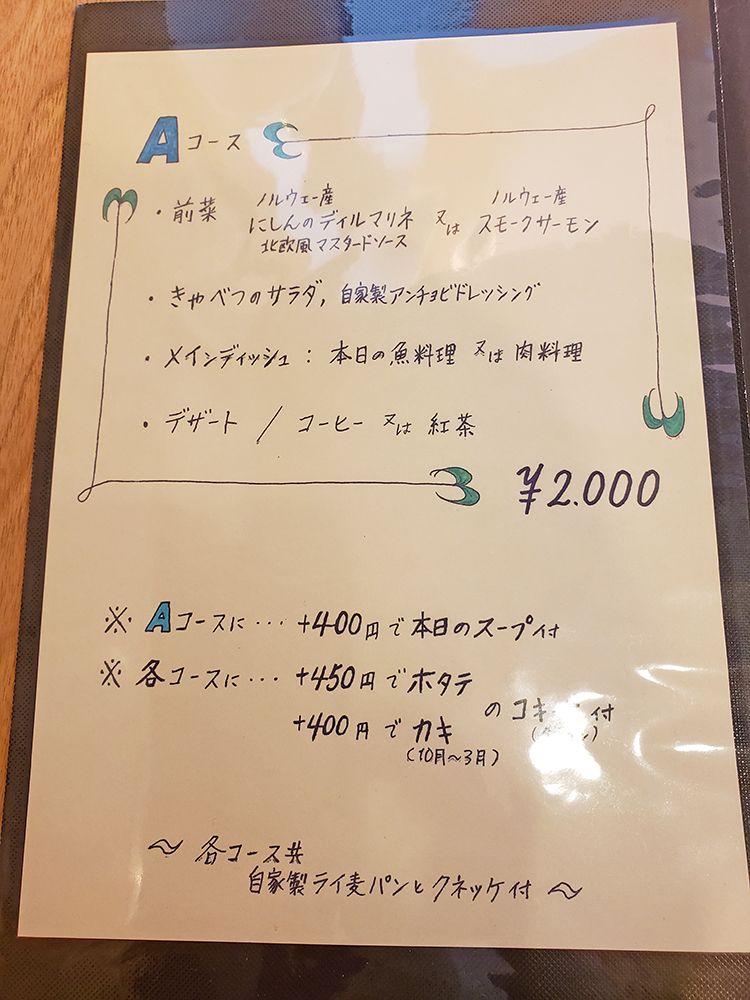 Aコース
・前菜 ノルウェー産 ノルウェー産
にしんのディルマリネ 又は スモークサーモン
北欧風マスタードソース
・きゃべつのサラダ, 自家製アンチョビドレッシング
・メインディッシュ : 本日の魚料理 又は 肉料理
・デザート / コーヒー 又は 紅茶
¥2.000
※ Aコースに・・・ +400円で本日のスープ付
※ 各コースに・・・ +450円でホタテ
のコキ 付
+400円でカキ
(10月〜3月)
〜 各コース共
自家製ライ麦パンとクネッケ付 〜